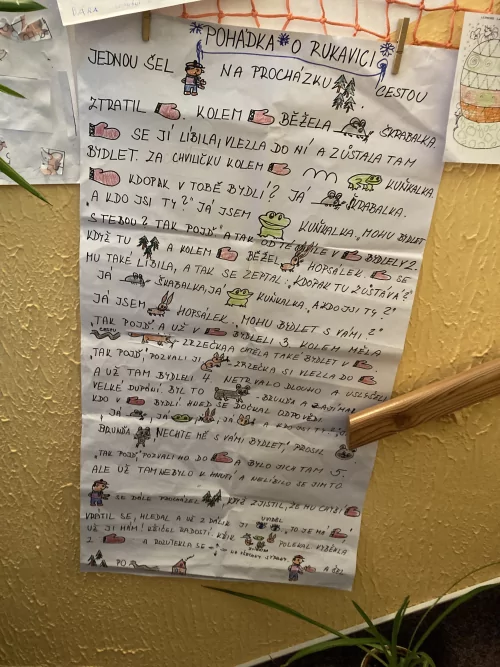 *POHÁDKA* O RUKAVICI*
JEDNOU ŠEL NA PROCHÁZKU CESTOU
ZTRATIL . KOLEM BĚŽELA ŠKRABALKA.
SE JÍ LÍBILA, VLEZLA DO NÍ A ZŮSTALA TAM
BYDLET. ZA CHVILIČKU KOLEM KUŇKALKA.
KDOPAK V TOBĚ BYDLÍ? JÁ ŠKRABALKA.
„A KDO JSI TY?" JÁ JSEM KUŇKALKA, MOHU BYDLET
S TEBOU? TAK POJĎ" A TAK OD TÉ V BYDLELY 2.
KDYŽ TU A KOLEM BĚŽEL HOPSÁLEK. SE
MU TAKÉ LÍBILA, A TAK SE ZEPTAL: „KDOPAK TU ZŮSTÁVÁ?"
JÁ ŠKRABALKA, JÁ KUŇKALKA, A KDO JSI TY?"
JÁ JSEM HOPSÁLEK. „MOHU BYDLET S VÁMI?"
„TAK POJĎ" A UŽ V BYDLELI 3. KOLEM MĚLA
CESTU ZRZEČKA A CHTĚLA TAKÉ BYDLET V
„TAK POJĎ", POZVALI JI ZRZEČKA SI VLEZLA DO
A UŽ TAM BYDLELI 4. NETRVALO DLOUHO A USLYŠELI
VELKÉ DUPÁNÍ. BYL TO BRUNĎA A
KDO V BYDLÍ HNED SE DOČKAL ODPOVĚDI
JÁ , JÁ , JÁ , JÁ A KDO JSI
BRUNĎA NECHTE MĚ S VÁMI BYDLET", PROSIL
„TAK POJĎ", POZVALI HO DO A BYLO JICH TAM 5.
ALE UŽ TAM NEBYLO K HNUTÍ A NELÍBILO SE JIM TO
SE DÁLE PROCHÁZEL KDYŽ ZJISTIL, ŽE MU CHYBÍ
VRÁTIL SE, HLEDAL A UŽ Z DÁLI JI VIDĚL „TO JE MÁ
UŽ JI MÁM! KŘIČEL RADOSTÍ. KŘIK POLEKAL VYBĚHLA
Z A ROZUTEKLA SE NA VŠECHNY STRANY.
PO A ŠEL